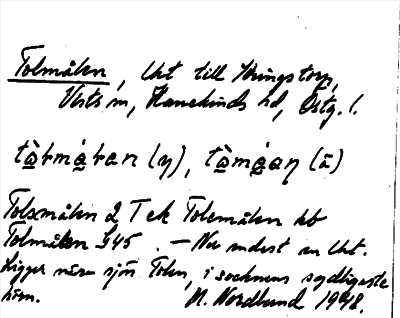 Tolmålen, lht till Kringstorp,
Vists sn, Hanekinds hd, Östg. l.
tòḷmá̀ḷan (y), tòmá̀aṇ (ä)
Tolsmålen 2 T ek Tolemålen kb
Tolmålen G45. — Nu endast en lht.
Ligger nära sjön Tolen, i socknens sydligaste
hörn. N. Nordlund 1948.